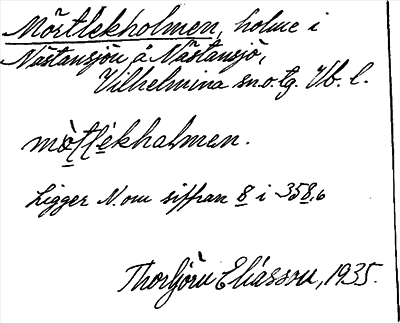 Mörtlekholmen, holme i
Nästansjön å Nästansjö,
Vilhelmina sn o. tg. Vb. l.
mò̱tlèkhalmen.
Ligger N. om siffran 8 i 358,6
Thorbjörn Eliasson, 1935.